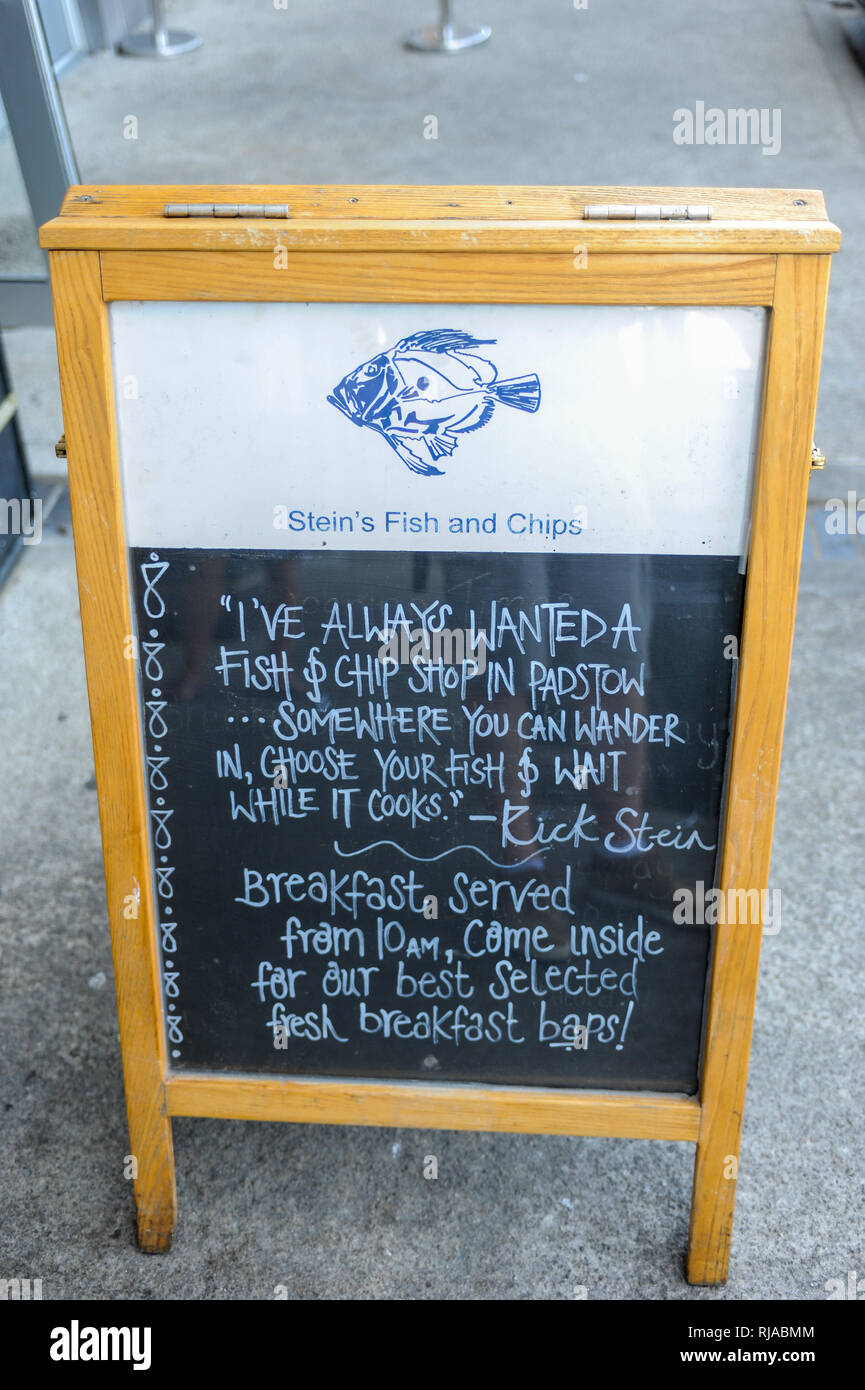 Stein's Fish and Chips
"I'VE ALWAYS WANTED A
FISH & CHIP SHOP IN PADSTOW
...SOMEWHERE YOU CAN WANDER
IN, CHOOSE YOUR FISH & WAIT
WHILE IT COOKS." -Rick Stein
Breakfast served
from 10AM, come inside
for our best selected
fresh breakfast baps!
alamy
Image ID: RJABMM
www.alamy.com